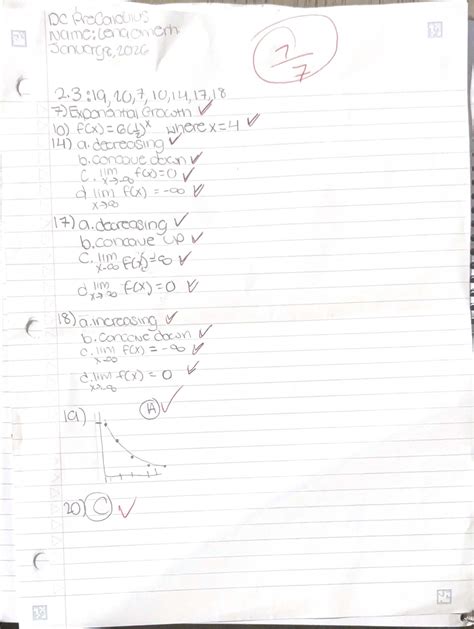 DC PreCalculus
Name:
January 2026
7/7
2.3:19, 20, 7, 10, 14, 17, 18
7) Exponential Growth ✓
10) f(x) = 6(1/2)^x where x = 4 ✓
14) a. decreasing ✓
b. concave down ✓
c. lim x→-∞ f(x) = 0 ✓
d. lim x→∞ f(x) = -∞ ✓
17) a. decreasing ✓
b. concave up ✓
c. lim x→-∞ f(x) = ∞ ✓
d. lim x→∞ f(x) = 0 ✓
18) a. increasing ✓
b. concave down ✓
c. lim f(x) = -∞ ✓
d. lim f(x) = 0 ✓
19) A ✓
20) C ✓